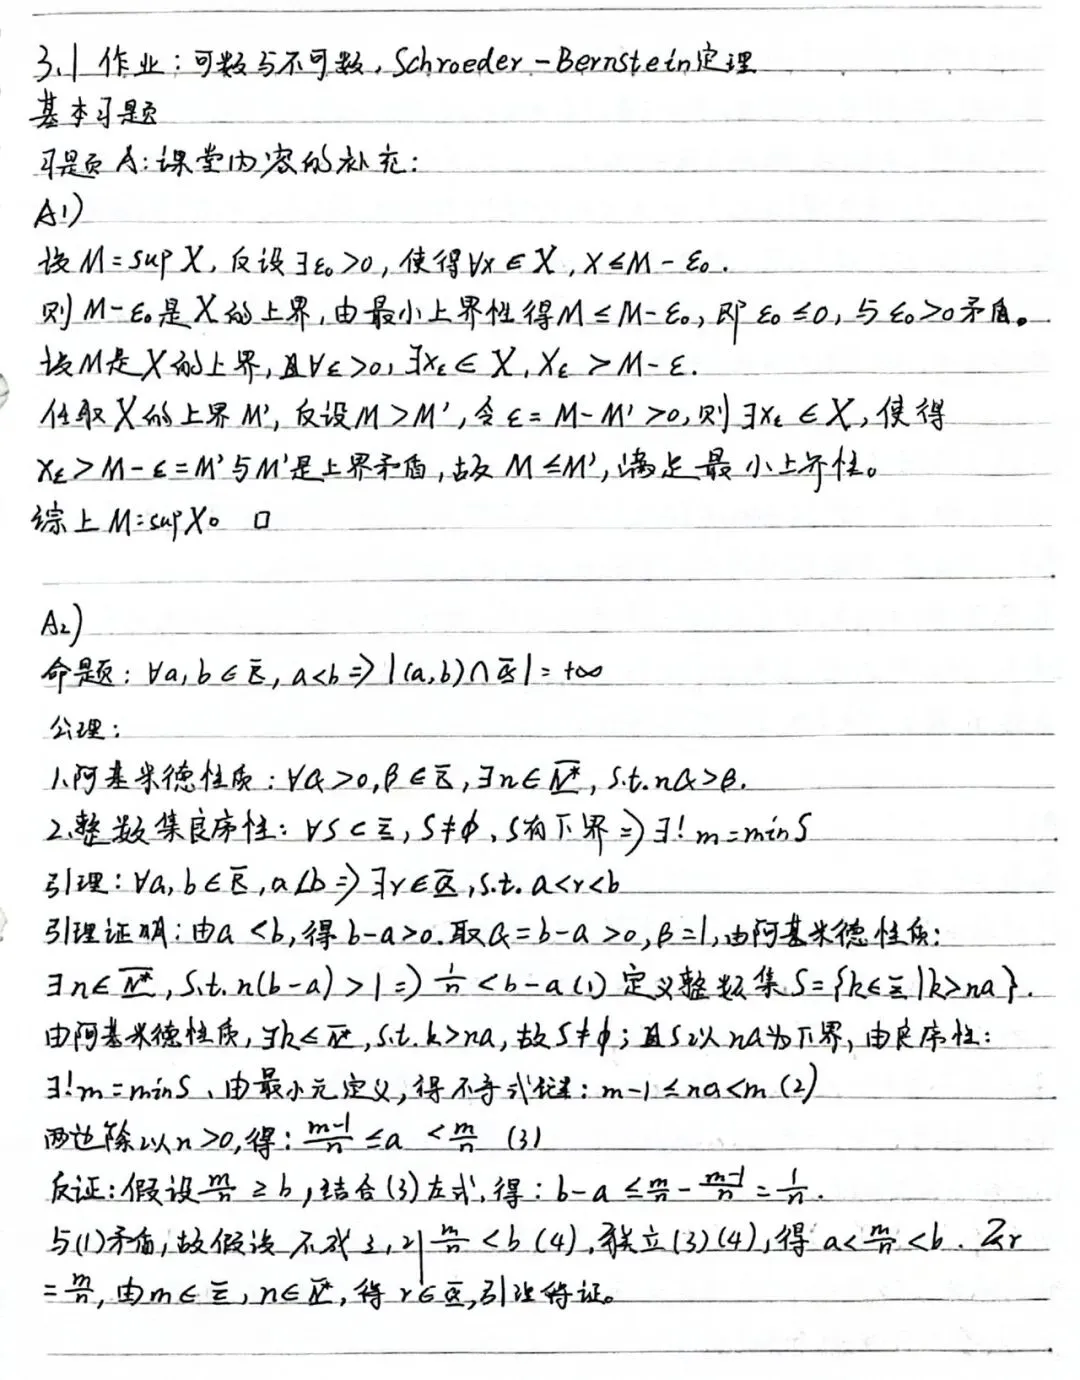 3.1 作业：可数与不可数，Schroeder-Bernstein定理
基本习题
习题A：课堂内容的补充：
A1)
设M=sup X，反设∃ε₀>0，使得∀x∈X，x≤M-ε₀.
则M-ε₀是X的上界，由最小上界性得M≤M-ε₀，即ε₀≤0，与ε₀>0矛盾。
设M是X的上界，且∀ε>0，∃xε∈X，xε>M-ε.
任取X的上界M'，反设M>M'，令ε=M-M'>0，则∃xε∈X，使得
xε>M-ε=M'与M'是上界矛盾，故M≤M'，满足最小上界性。
综上M=sup X。 □
A2)
命题：∀a,b∈R，a<b⇒|(a,b)∩Q|=+∞
公理：
1.阿基米德性质：∀α>0,β∈R,∃n∈N*，s.t.nα>β.
2.整数集良序性：∀S⊂Z，S≠∅，S有下界⇒∃! m=minS
引理：∀a,b∈R，a<b⇒∃r∈Q，s.t. a<r<b
引理证明：由a<b，得b-a>0.取α=b-a>0，β=1，由阿基米德性质：
∃n∈N*，s.t. n(b-a)>1⇒1/n<b-a (1) 定义整数集S={k∈Z|k>na}.
由阿基米德性质，∃k∈N*，s.t. k>na，故S≠∅；且S以na为下界，由良序性：
∃!m=minS、由最小元定义，得不等式链：m-1≤na<m (2)
两边除以n>0，得：(m-1)/n≤a<m/n (3)
反证：假设m/n≥b，结合(3)左式，得：b-a≤m/n-(m-1)/n=1/n.
与(1)矛盾，故假设不成立，则m/n<b (4)，联立(3)(4)，得a<m/n<b. 令r
=m/n，由m∈Z，n∈N*，得r∈Q，引理得证。